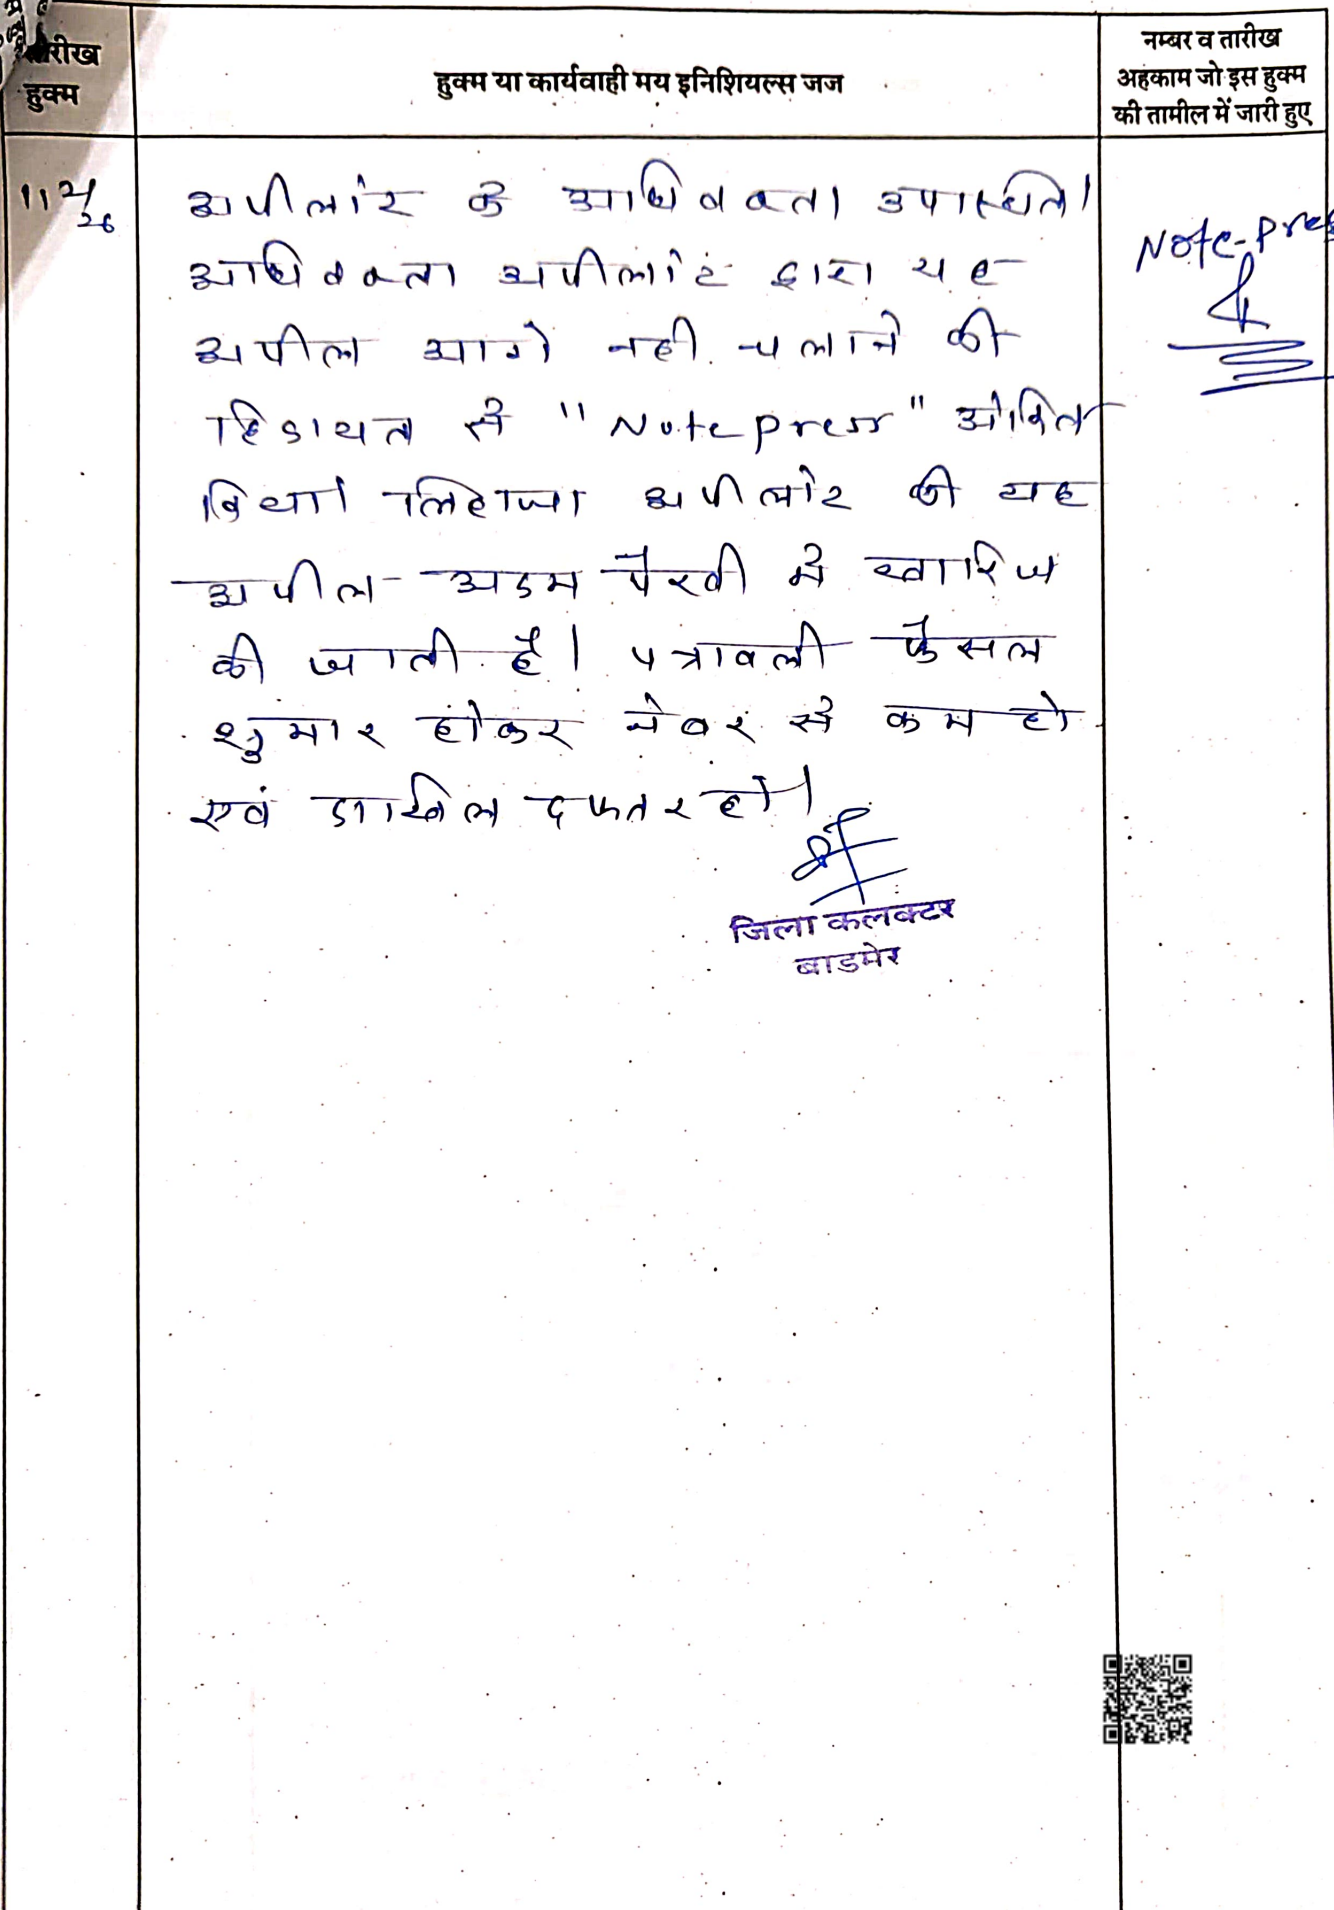 तारीख
हुक्म
हुक्म या कार्यवाही मय इनिशियल्स जज
नम्बर व तारीख
अहकाम जो इस हुक्म
की तामील में जारी हुए
अपीलांट के अधिवक्ता उपस्थित।
अधिवक्ता अपीलांट द्वारा यह
अपील आगे नही चलाने की
हिदायत से "Note press" अंकित
किया। लिहाजा अपीलांट की यह
अपील अदम पैरवी मे खारिज
की जाती है। पत्रावली फैसल
शुमार होकर नंबर से कम हो
एवं दाखिल दफ्तर हो।
Note-Press
जिला कलक्टर
बाडमेर